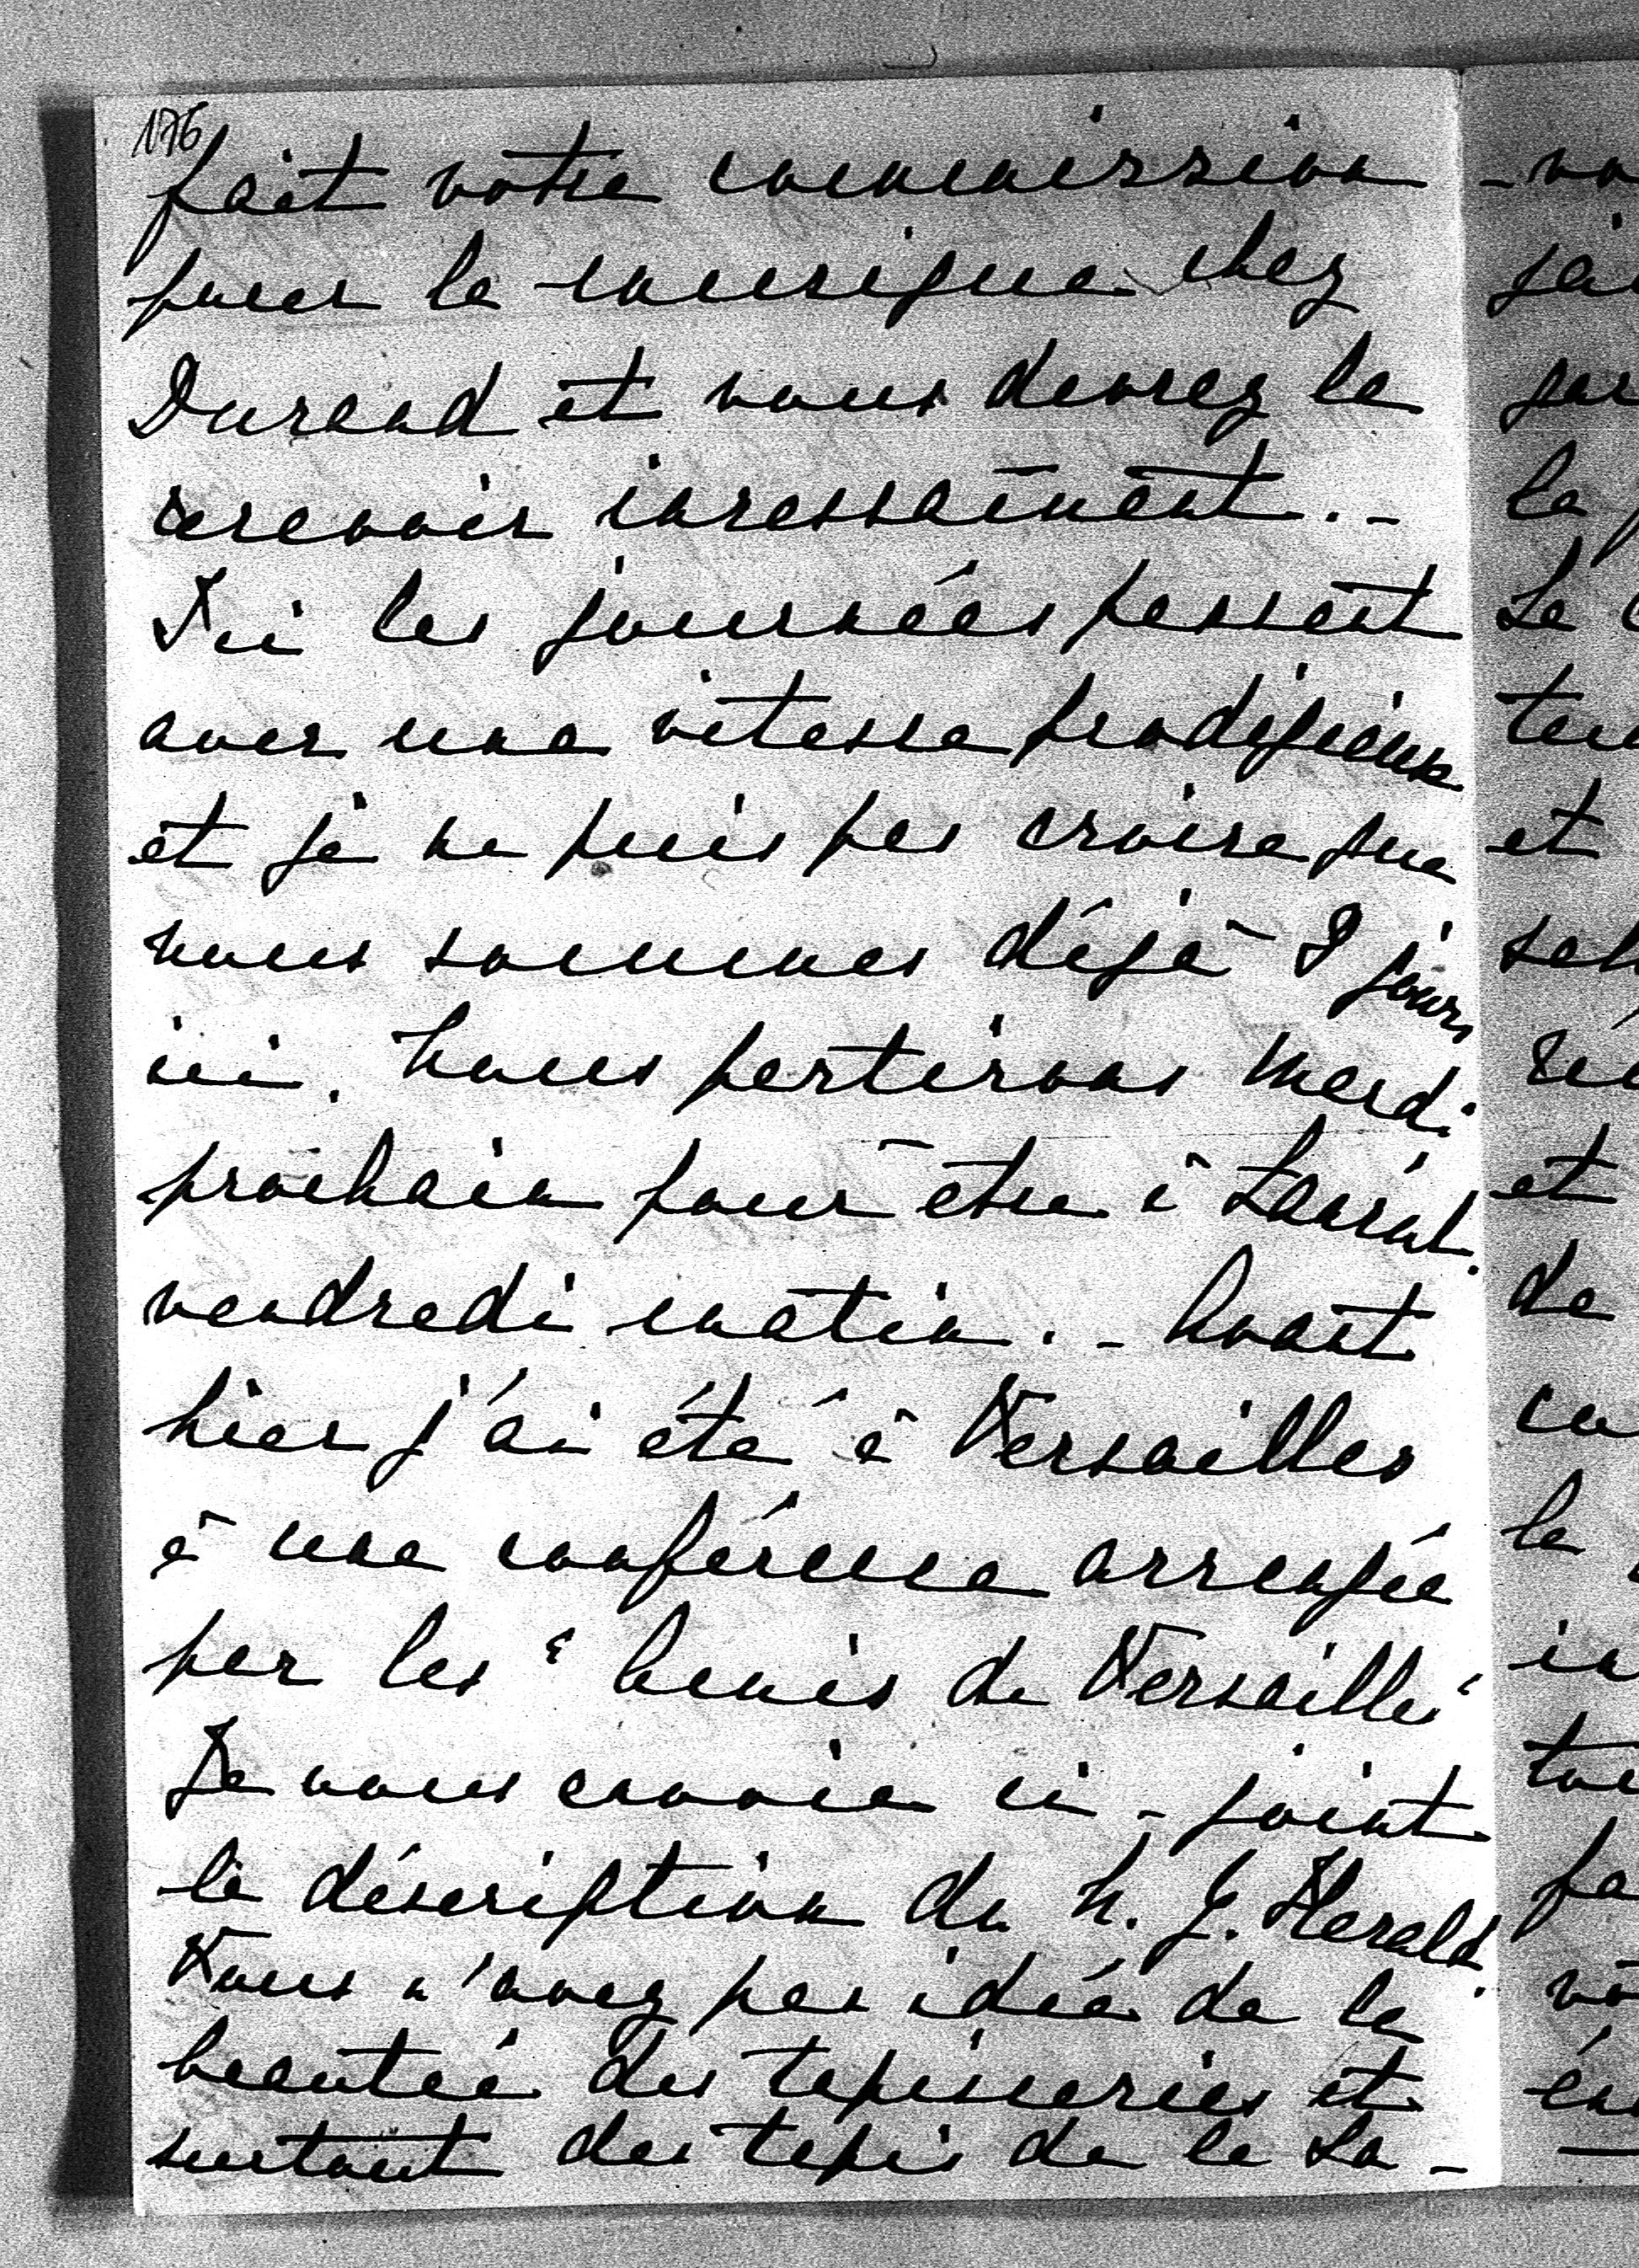 176
fait votre commission
pour la musique chez
Durand et vous devrez la
recevoir incessament. -
Ici les journées passent
avec une vitesse prodigieuse
et je ne puis pas croire que
nous sommes déjà 8 jours
ici. Nous partirons mardi
prochain pour être à
vendredi matin. - Avant
hier j'ai été à Versailles
à une conférence arrangée
par les "Amis de Versailles"
Je vous envoie ci-joint
la déscription du N. Y. Herald.
Vous n'avez pas idée de la
beautée des tapisseries et
surtout des tapis de la Sa-